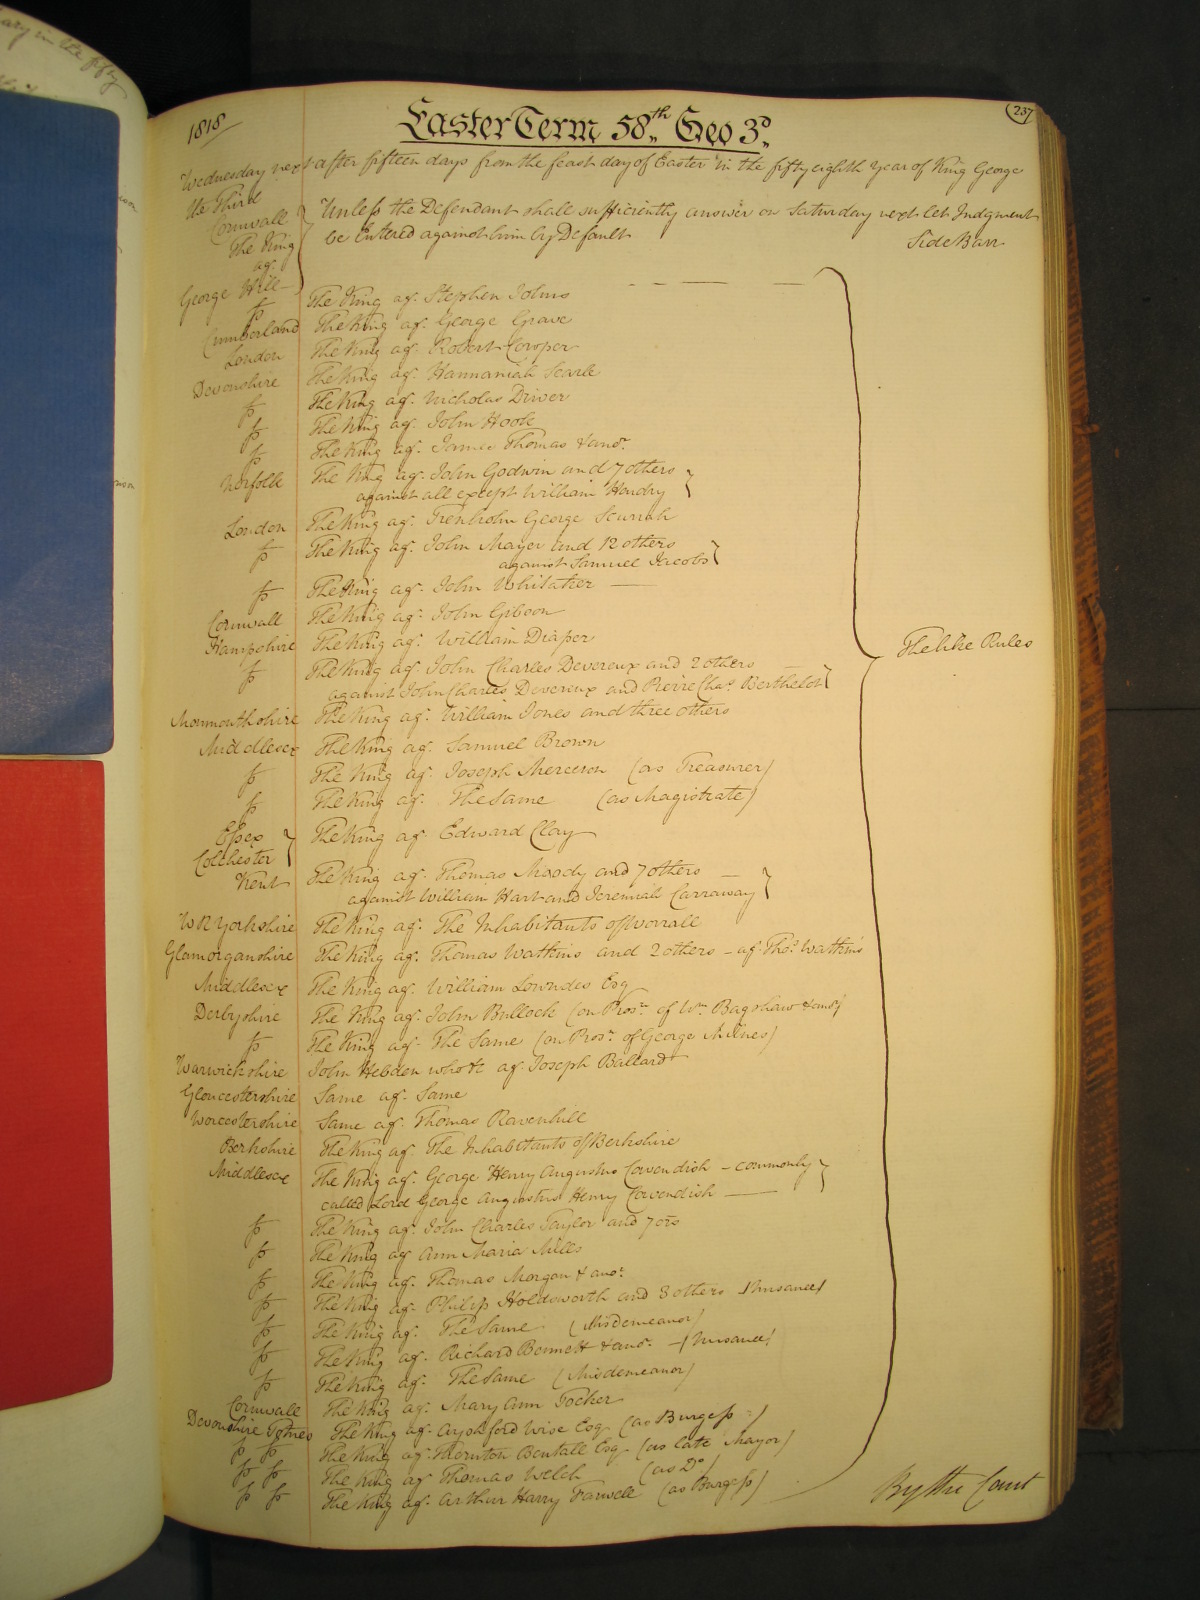 1818
Easter Term 58th Geo 3d
237
Wednesday next after fifteen days from the feast day of Easter in the fifty eighth Year of King George
the Third
Cornwall The King agt George Hill Unless the Defendant shall sufficiently answer on Saturday next let Judgment
be Entered against him by Default
Side Barr
The King agt Stephen Johns
Cumberland The King agt George Grave
London The King agt Robert Cowper
Devonshire The King agt Hannaniah Searle
The King agt Nicholas Driver
The King agt John Hoole
The King agt James Thomas & anor
Norfolk The King agt John Godwin and 7 others
against all except William Hardry
London The King agt Trenholm George Scurrah
The King agt John Mayer and 12 others
against Samuel Jacobs
The King agt John Whitaker
Cornwall The King agt John Gibson
Hampshire The King agt William Draper
The King agt John Charles Devereux and 2 others
against John Charles Devereux and Pierre Chas Berthelot
The like Rules
Monmouthshire The King agt William Jones and three others
Middlesex The King agt Samuel Brown
The King agt Joseph Merceron (as Treasurer)
The King agt The Same (as Magistrate)
Essex Colchester The King agt Edward Clay
Kent The King agt Thomas Moody and 7 others
against William Hart and Jeremiah Carraway
WR Yorkshire The King agt The Inhabitants of Worrall
Glamorganshire The King agt Thomas Watkins and 2 others - agt Thos Watkins
Middlesex The King agt William Lowndes Esq
Derbyshire The King agt John Bullock (on Prosn of Wm Bagshaw & anor)
The King agt The Same (on Prosn of George Milnes)
Warwickshire John Hebden who &c agt Joseph Ballard
Gloucestershire Same agt Same
Worcestershire Same agt Thomas Ravenhill
Berkshire The King agt The Inhabitants of Berkshire
Middlesex The King agt George Henry Augustus Cavendish - commonly
called Lord George Augustus Henry Cavendish
The King agt John Charles Taylor and 7 ors
The King agt Ann Maria Mills
The King agt Thomas Morgan & anor
The King agt Philip Holdsworth and 3 others (Nusance)
The King agt The Same (Misdemeanor)
The King agt Richard Bennett & anor - (Nusance)
The King agt The Same (Misdemeanor)
Cornwall The King agt Mary Ann Tocker
Devonshire Totnes The King agt Ayshford Wise Esq (as Burgess)
The King agt Thornton Bentall Esq (as late Mayor)
The King agt Thomas Welch (as Do)
The King agt Arthur Harry Farwell (as Burgess)
By the Court